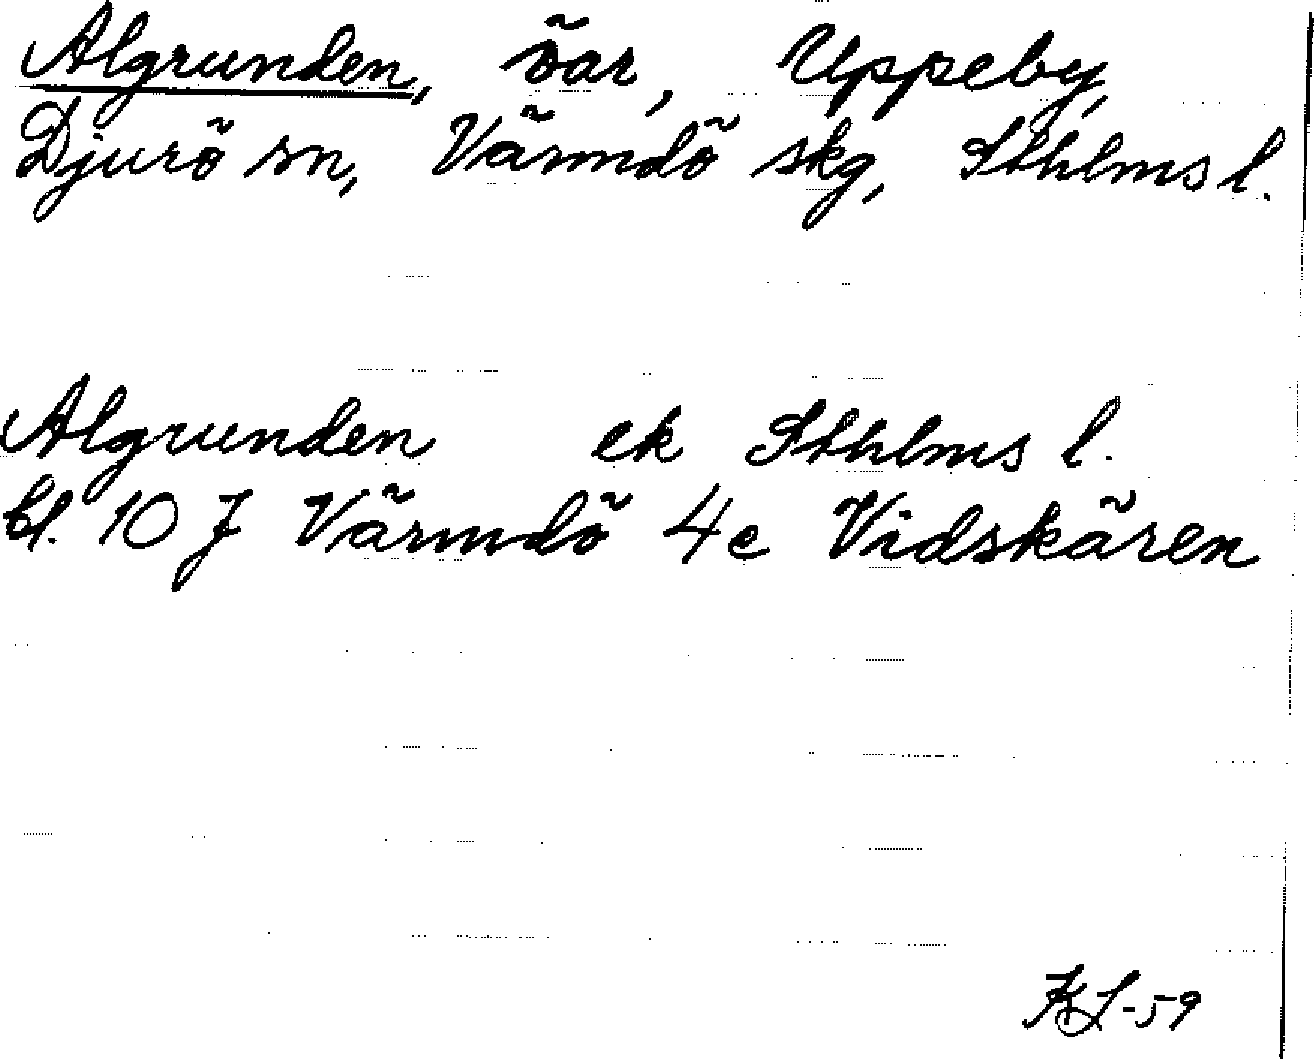 Algrunden, öar, Uppeby,
Djurö sn, Värmdö skg, Sthlms l.
Algrunden ek Sthlms l.
bl. 10 J Värmdö 4e Vidskären
KL-59